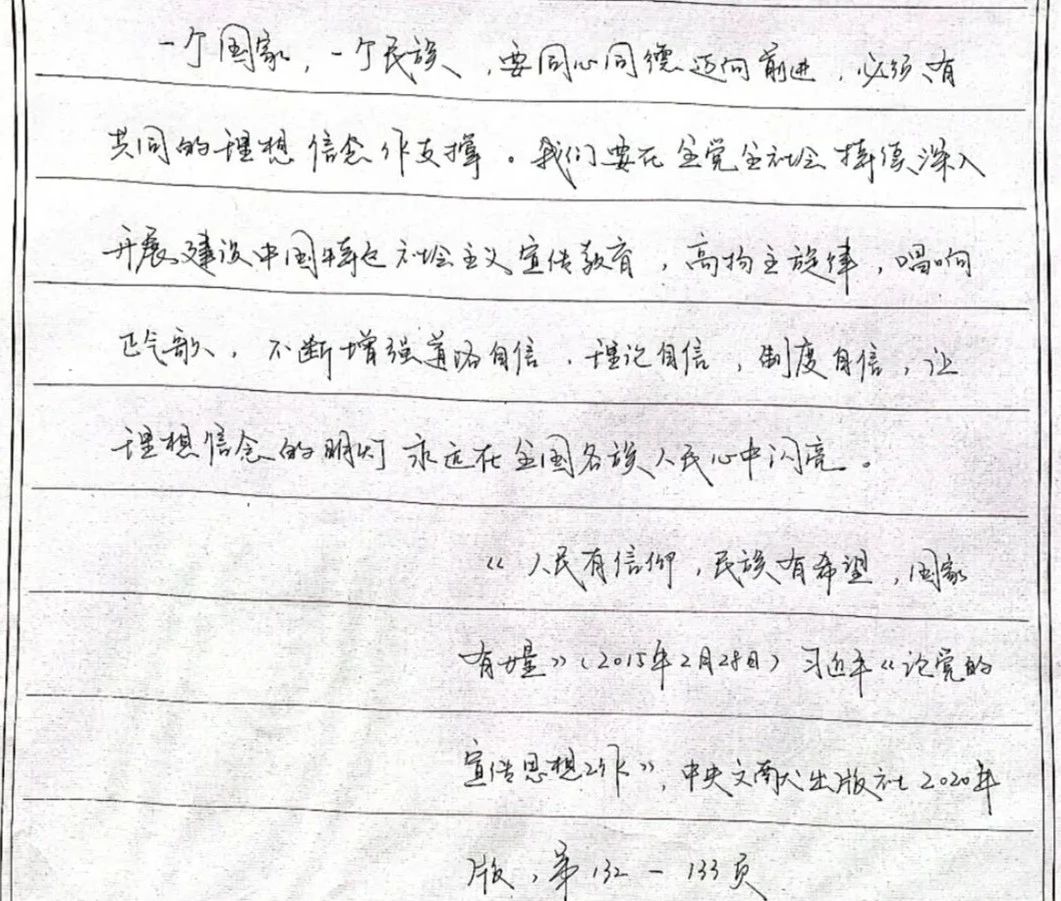 一个国家，一个民族，要同心同德迈向前进，必须有
共同的理想信念作支撑。我们要在全党全社会持续深入
开展建设中国特色社会主义宣传教育，高扬主旋律，唱响
正气歌，不断增强道路自信、理论自信，制度自信，让
理想信念的明灯永远在全国各族人民心中闪亮。
《人民有信仰，民族有希望，国家
有力量》（2015年2月28日）习近平《论党的
宣传思想工作》，中央文献出版社2020年
版，第132－133页